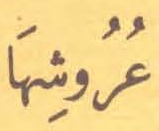 عُرُوشِهَا